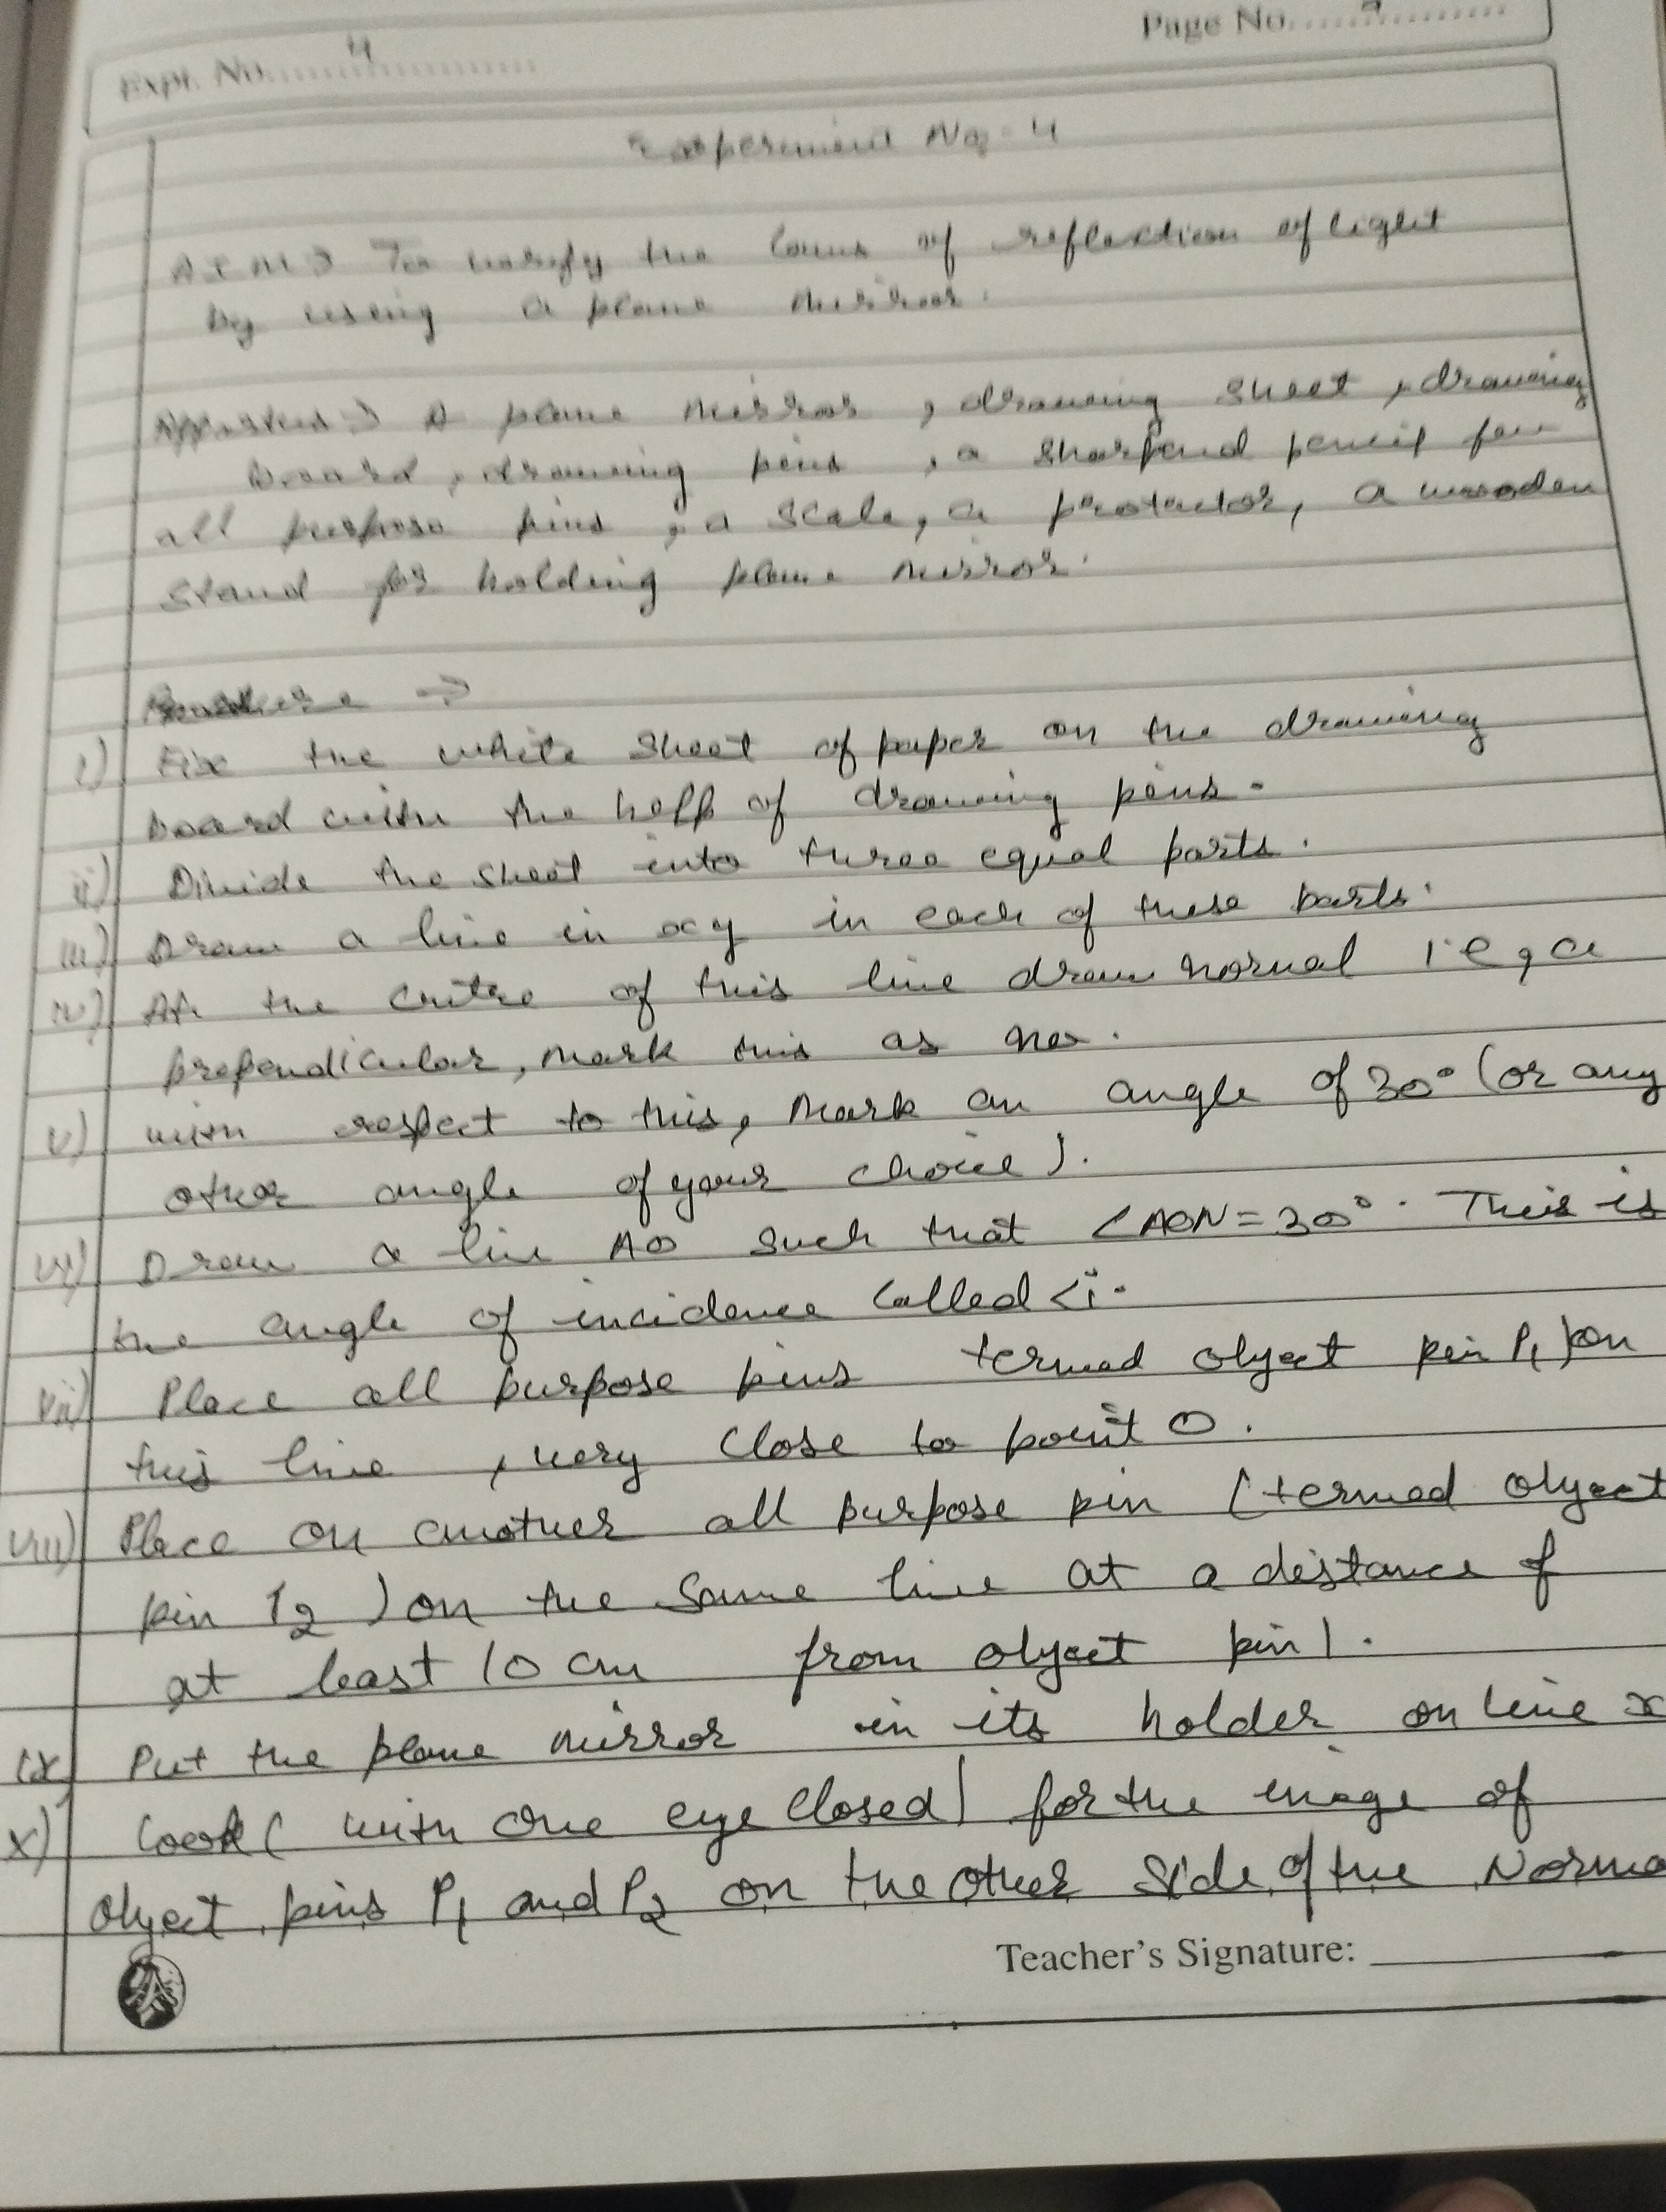 Page No. 9
Expt. No. 4
Experiment No - 4
AIM → To verify the laws of reflection of light
by using a plane mirror.
A plane mirror, drawing sheet, drawing
board, drawing pins, a sharpend pencil few
all purpose pins, a scale, a protactor, a wooden
stand for holding plane mirror.
→
i) Fix the white sheet of paper on the drawing
board with the help of drawing pins.
ii) Divide the sheet into three equal parts.
iii) Draw a line in xy in each of these parts.
iv) At the centre of this line draw normal i.e, a
prependicular, mark this as no.
v) with respect to this, mark an angle of 30° (or any
other angle of your choice).
vi) Draw a line AO such that ∠AON = 30°. This is
the angle of incidence called ∠i.
vii) Place all purpose pins termed object pin P1) on
this line, very close to point O.
viii) Place on another all purpose pin (termed object
pin P2) on the same line at a distance of
at least 10 cm from object pin 1.
ix) Put the plane mirror in its holder on line x
x) Look (with one eye closed) for the image of
object pins P1 and P2 on the other side of the Norma
Teacher's Signature: